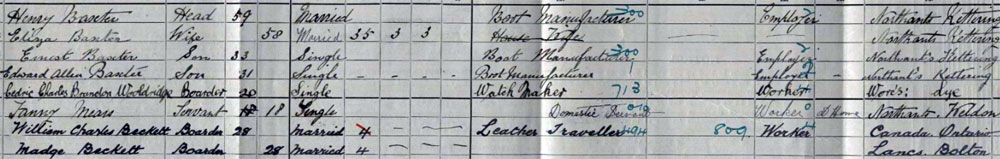 Henry Baxter Head 59 Married Boot Manufacturer 300 Employer Northants Kettering
Eliza Baxter Wife 58 Married 35 3 3 House Wife Northants Kettering
Ernest Baxter Son 33 Single Boot Manufacturer 300 Employer Northants Kettering
Edward Allen Baxter Son 31 Single Boot Manufacturer Employer Northants Kettering
Cedric Charles Wooldridge Boarder 20 Single Watch Maker 713 Worker Worcs: dye
Fanny Mears Servant 18 Single Domestic Servant Worker At Home Northants Weldon
William Charles Beckett Boarder 28 Married 4 Leather Traveller 494 809 Worker Canada. Ontario
Madge Beckett Boarder 28 Married 4 Lancs. Bolton